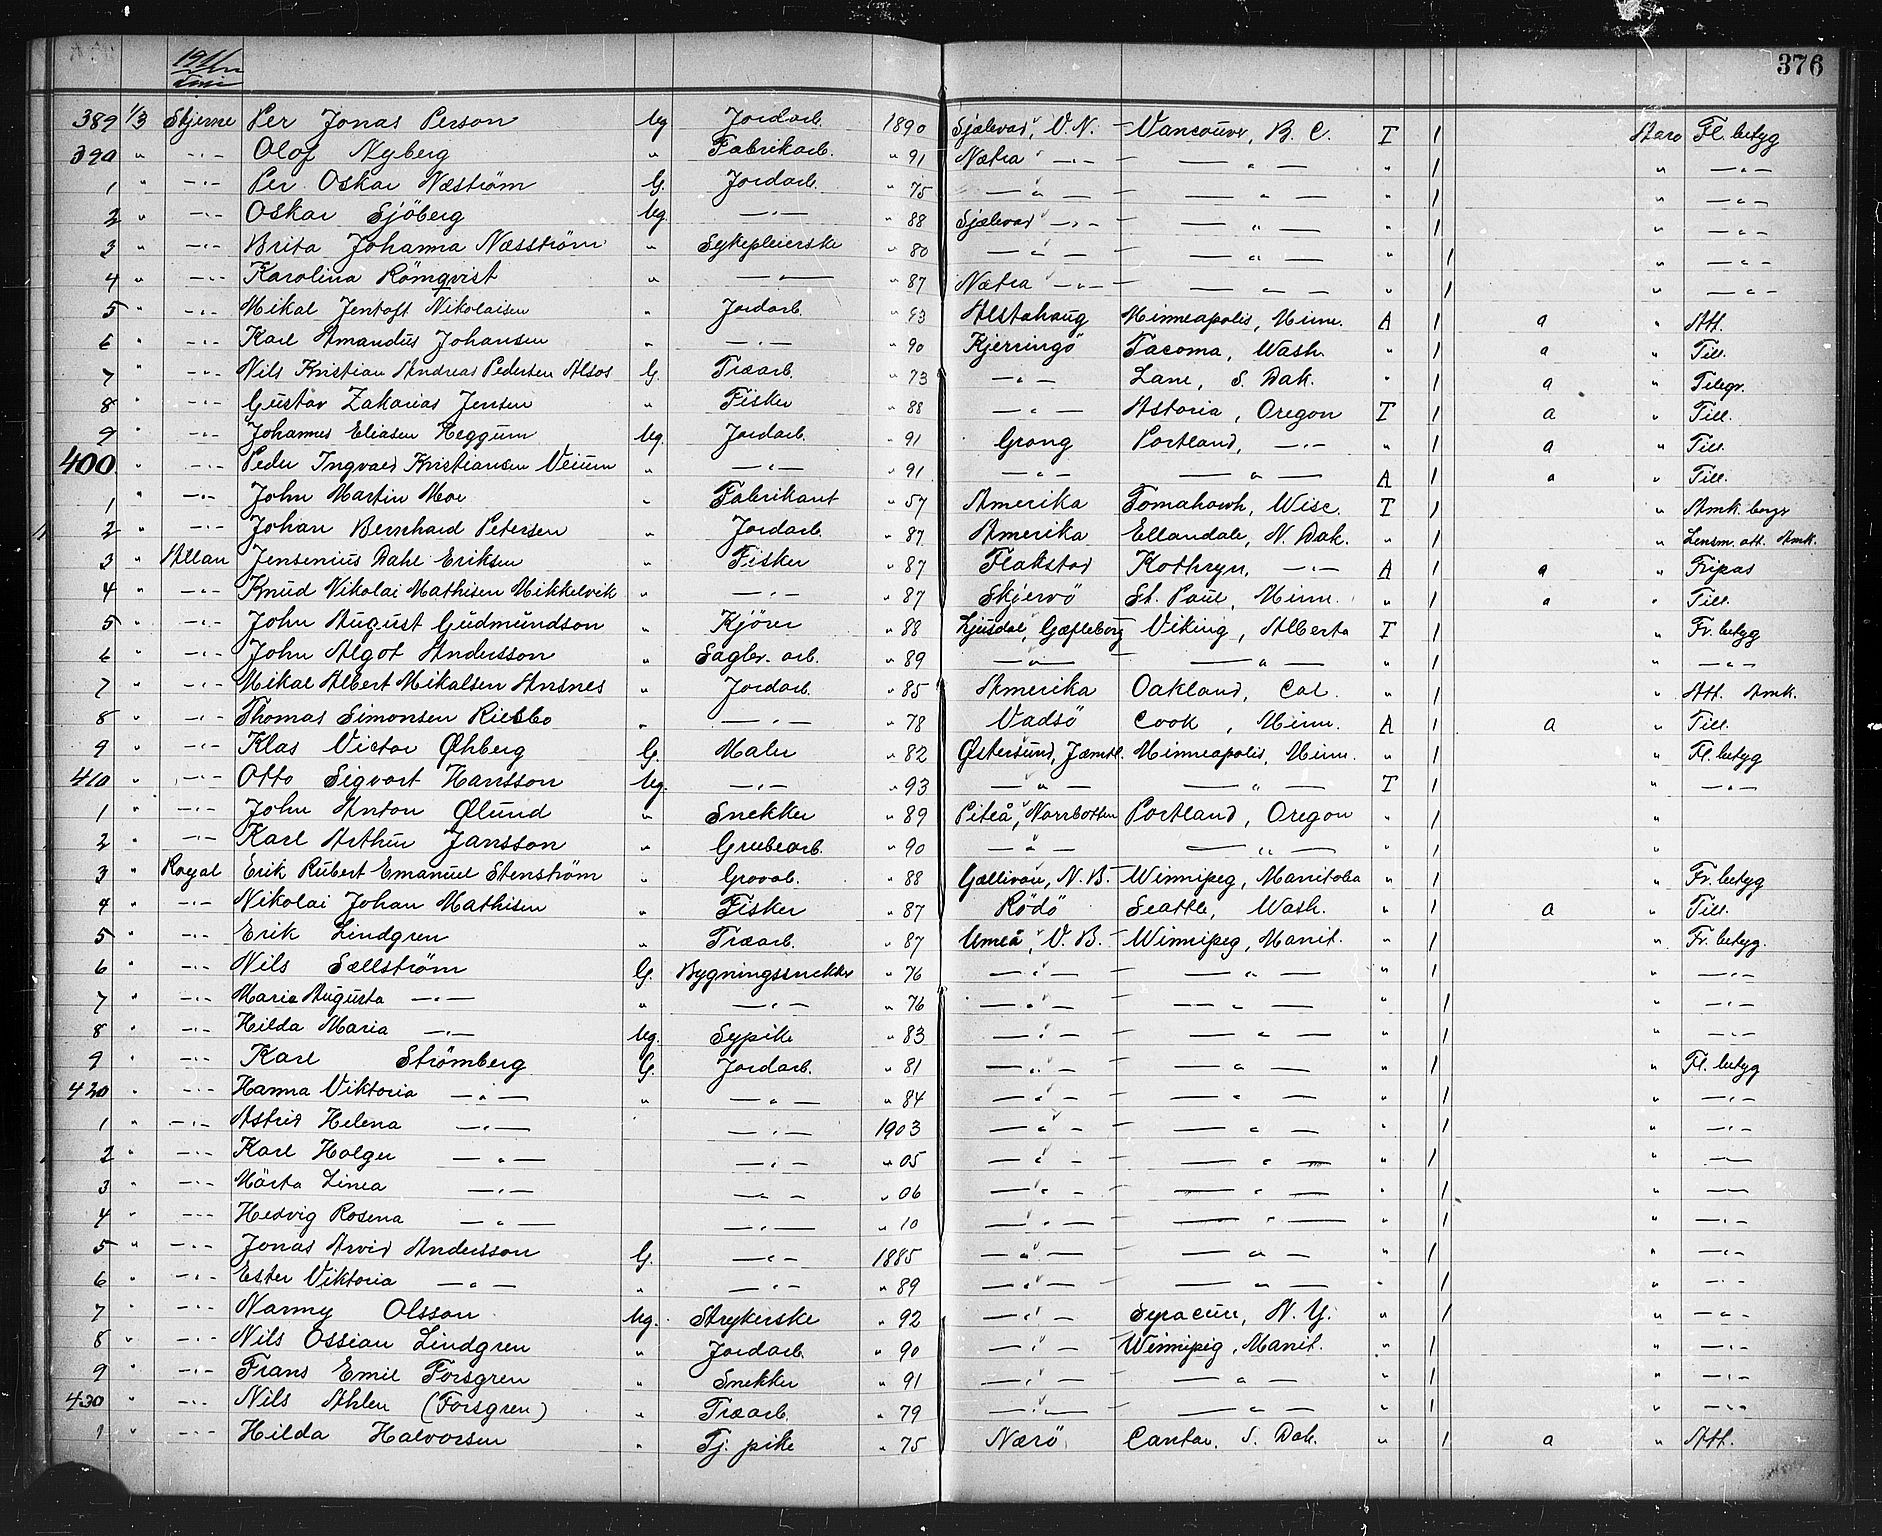 376
389 1/3 Stjerne Per Jonas Person Ug Jordarb. 1890 Sjælevad, V.N. Vancouver, B. C. T 1 Aaro Fl. betyg
390 " -"- Olof Nyberg " Fabrikarb. " 91 Nætra -"- -"- " 1 " -"-
1 " -"- Per Oskar Næström G. Jordarb. " 75 -"- -"- " 1 " -"-
2 " -"- Oskar Sjöberg Ug. -"- " 88 Sjælevad -"- -"- " 1 " -"-
3 " -"- Brita Johanna Næsström " Sykepleierske " 80 -"- -"- " 1 " -"-
4 " -"- Karolina Römqvist " -"- " 87 Nætra -"- -"- " 1 " -"-
5 " -"- Mikal Jentoft Nikolaisen " Jordarb. " 93 Alstahaug Minneapolis, Minn. A 1 a " Att.
6 " -"- Karl Amandus Johansen " -"- " 90 Kjerringö Tacoma, Wash. " 1 a " Till.
7 " -"- Nils Kristian Andreas Pedersen Alsos G. Træarb. " 73 -"- Lane, S. Dak. " 1 a " Telegr.
8 " -"- Gustav Zakarias Jensen " Fisker " 88 -"- Astoria, Oregon T 1 a " Till.
9 " -"- Johannes Eliasen Heggum Ug. Jordarb. " 91 Grong Portland, -"- " 1 a " Till.
400 " -"- Peder Ingvald Kristiansen Veium " -"- " 91 -"- -"- A 1 a " Till.
1 " -"- John Martin Moe " Fabrikant " 57 Amerika Tomahowh, Wisc. T 1 " Amk. borgr
2 " -"- Johan Bernhard Petersen " Jordarb. " 87 Amerika Ellandale, N. Dak. " 1 " Lensm. att. Amk.
3 " Allan Jensenius Dahl Eriksen " Fisker " 87 Flakstad Kathryn, -"- A 1 a " Fripas
4 " -"- Knud Nikolai Mathisen Mikkelvik " -"- " 87 Skjervö St. Paul, Minn. " 1 a " Till.
5 " -"- John August Gudmundson " Kjörer " 88 Ljusdal, Gæfleborg Viking, Alberta T 1 " Fr. betyg
6 " -"- John Algot Andersson " Sagbr. arb. " 89 -"- -"- " 1 " -"-
7 " -"- Mikal Albert Mikalsen Ansnes " Jordarb. " 85 Amerika Oakland, Cal. " 1 " Att. Amk.
8 " -"- Thomas Simonsen Riesbo " -"- " 78 Vadsö Cook, Minn. A 1 a " Till.
9 " -"- Klas Victor Øhberg G. Maler " 82 Østersund, Jæmtl. Minneapolis, Minn. " 1 " Fl. betyg
410 " -"- Otto Sigvart Hansson Ug. -"- " 93 -"- -"- T 1 " -"-
1 " -"- John Anton Ølund " Snekker " 89 Piteå, Norrbotten Portland, Oregon " 1 "
2 " -"- Karl Arthur Jansson " Grubearb. " 90 -"- -"- " 1 "
3 " Royal Erik Rubert Emanuel Stenström " Grovarb. " 88 Gællivare, N.B. Winnipeg, Manitoba " 1 " Fr. betyg
4 " -"- Nikolai Johan Mathisen " Fisker " 87 Rödö Seattle, Wash. " 1 a " Till.
5 " -"- Erik Lindgren " Træarb. " 87 Umeå, V. B. Winnipeg, Manit. " 1 " Fr. betyg.
6 " -"- Nils Sællström G. Bygningssnekker " 76 -"- -"- " 1 " -"-
7 " -"- Maria Augusta -"- " -"- " 76 -"- -"- " 1 " -"-
8 " -"- Hilda Maria -"- Ug. Sypike " 83 -"- -"- " 1 " -"-
9 " -"- Karl Strömberg G. Jordarb. " 81 -"- -"- " 1 " Fl. betyg
420 " -"- Hanna Viktoria -"- " -"- " 84 -"- -"- " 1 " -"-
1 " -"- Astrid Helena -"- -"- 1903 -"- -"- " 1 " -"-
2 " -"- Karl Holger -"- -"- " 05 -"- -"- " 1 " -"-
3 " -"- Märta Linea -"- -"- " 06 -"- -"- " 1 " -"-
4 " -"- Hedvig Rosena -"- -"- " 10 -"- -"- " 1 " -"-
5 " -"- Jonas Arvid Andersson G. -"- 1885 -"- -"- " 1 " -"-
6 " -"- Ester Viktoria -"- " -"- " 89 -"- -"- " 1 " -"-
7 " -"- Nanny Olsson Ug. Strykerske " 92 -"- Syracuse, N. Y. " 1 " -"-
8 " -"- Nils Ossian Lindgren " Jordarb. " 90 -"- Winnipeg, Manit. " 1 " -"-
9 " -"- Frans Emil Forsgren " Snekker " 91 -"- -"- " 1 " -"-
430 " -"- Nils Ahlen (Forsgren) " Træarb. " 79 -"- -"- " 1 " -"-
1 " -"- Hilda Halvorsen " Tj. pike " 75 Nærö Canton, S. Dak. " 1 a " Att.